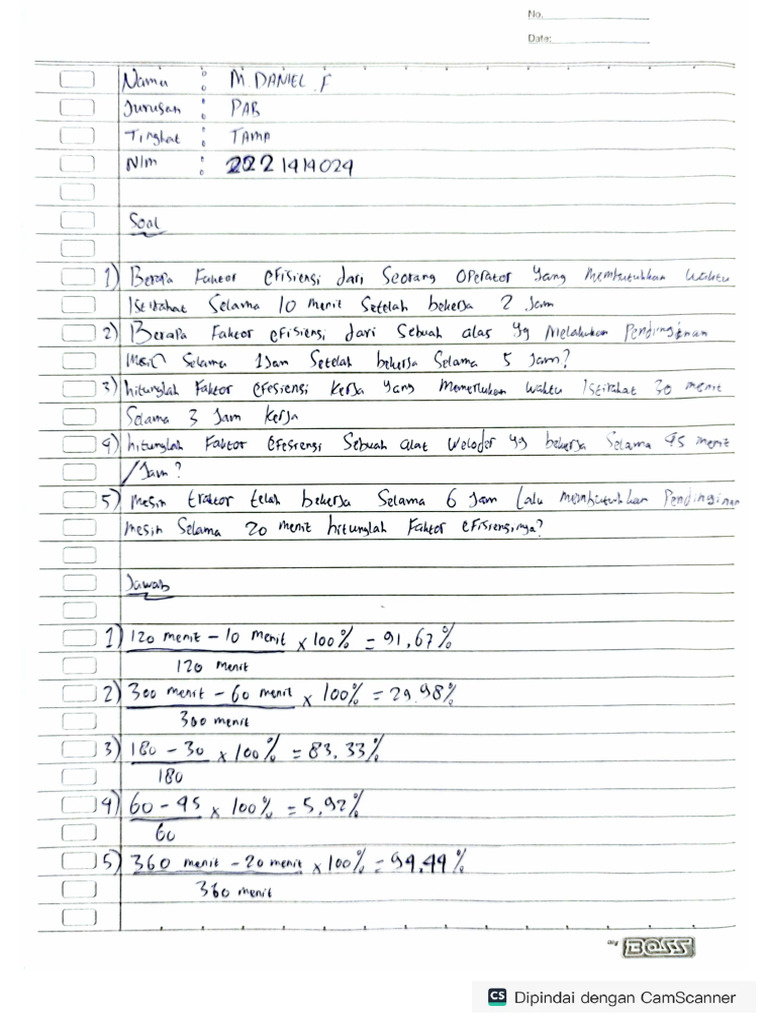 No.
Date:
Nama : M. DANIEL .F
Jurusan : PAB
Tingkat : TAMA
NIM : 2221414024
Soal
1) Berapa Faktor efisiensi dari Seorang Operator yang membutuhkan waktu
Istirahat Selama 10 menit Setelah bekerja 2 Jam
2) Berapa Faktor efisiensi dari Sebuah alat yg Melakukan Pendinginan
Mesin Selama 1 Jam Setelah bekerja Selama 5 Jam?
3) hitunglah Faktor efesiensi Kerja yang Memerlukan waktu Istirahat 30 menit
Selama 3 Jam Kerja
4) hitunglah Faktor efesiensi Sebuah alat Weloder yg bekerja Selama 45 menit
/Jam?
5) mesin traktor telah bekerja Selama 6 Jam lalu membutuhkan Pendinginan
mesin Selama 20 menit hitunglah Faktor efisiensinya?
Jawab
1) 120 menit - 10 menit x 100% = 91,67%
120 menit
2) 300 menit - 60 menit x 100% = 29.98%
300 menit
3) 180 - 30 x 100% = 83,33%
180
4) 60 - 45 x 100% = 5,92%
60
5) 360 menit - 20 menit x 100% = 94.44%
360 menit
my BOSS
CS Dipindai dengan CamScanner